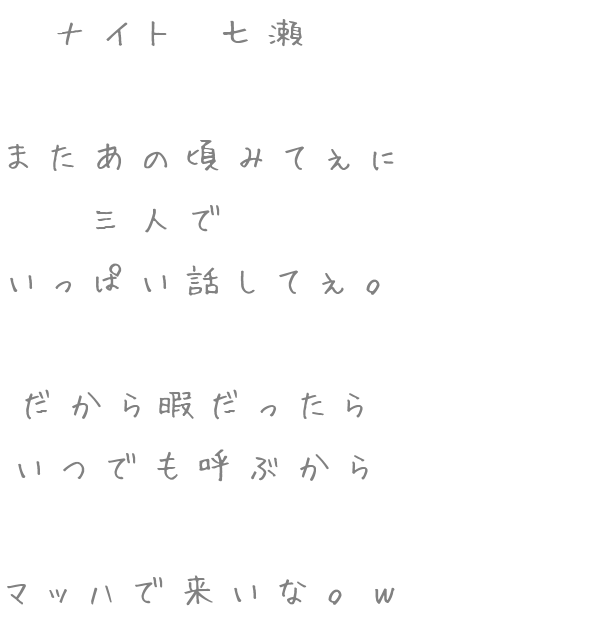 ナイト 七瀬
またあの頃みてぇに
三人で
いっぱい話してぇ。
だから暇だったら
いつでも呼ぶから
マッハで来いな。w